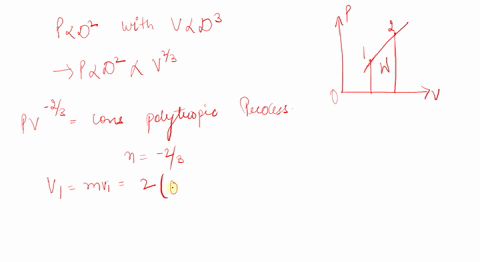 P∝D² with V∝D³
→ P∝D² ∝ V^{2/3}
PV^{-2/3} = cons polytropic Process
n = -2/3
V₁ = mv₁ = 2(0
P
1
2
W
0
V